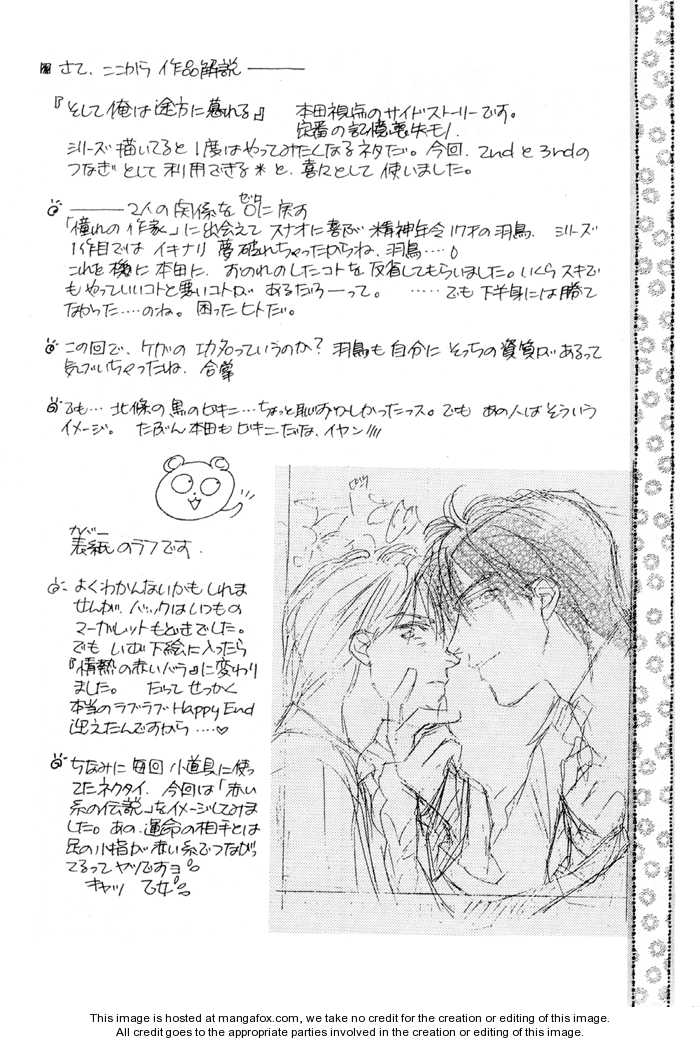 さて、ここから 作品解説 ―――
『そして俺は途方に暮れる』 本田視点のサイドストーリーです。
定番の記憶喪失モノ。
シリーズ描いてると1度はやってみたくなるネタだ。今回、2ndと3rdの
つなぎとして利用できる*と、喜々として使いました。
―――2人の関係を0に戻す
ゼロ
「憧れの作家」に出会えて スナオに喜ぶ 精神年令17才の羽鳥。 シリーズ
1作目では イキナリ 夢破れちゃったからね、羽鳥‥‥
これを機に本田に、おのれのしたコトを反省してもらいました。いくらスキで
もやっていいコトと悪いコトが あるだろーって。 ‥‥‥でも下半身には勝て
なかった‥‥のね。困ったヒトだ。
この回で、ケガの功名っていうのか? 羽鳥も自分に そっちの資質があるって
気づいちゃったね、合掌
でも‥‥ 北條の黒のビキニ‥‥ちょっと恥ずかしかったっス。でも あの人はそういう
イメージ。 たぶん本田もビキニだな、イヤン
カバー
表紙のラフです。
よくわかんないかもしれま
せんが、バックはいつもの
マーガレットもどきでした。
でも いざ下絵に入ったら
『情熱の赤いバラ』に変わり
ました。 だって せっかく
本当のラブラブ Happy End
迎えたんですから ‥‥♡
ちなみに 毎回 小道具に使っ
てたネクタイ、今回は「赤い
糸の伝説」をイメージしてみま
した。あの、運命の相手とは
足の小指が赤い糸でつながっ
てるってヤツですョ。
キャッ 乙女。
This image is hosted at mangafox.com, we take no credit for the creation or editing of this image.
All credit goes to the appropriate parties involved in the creation or editing of this image.